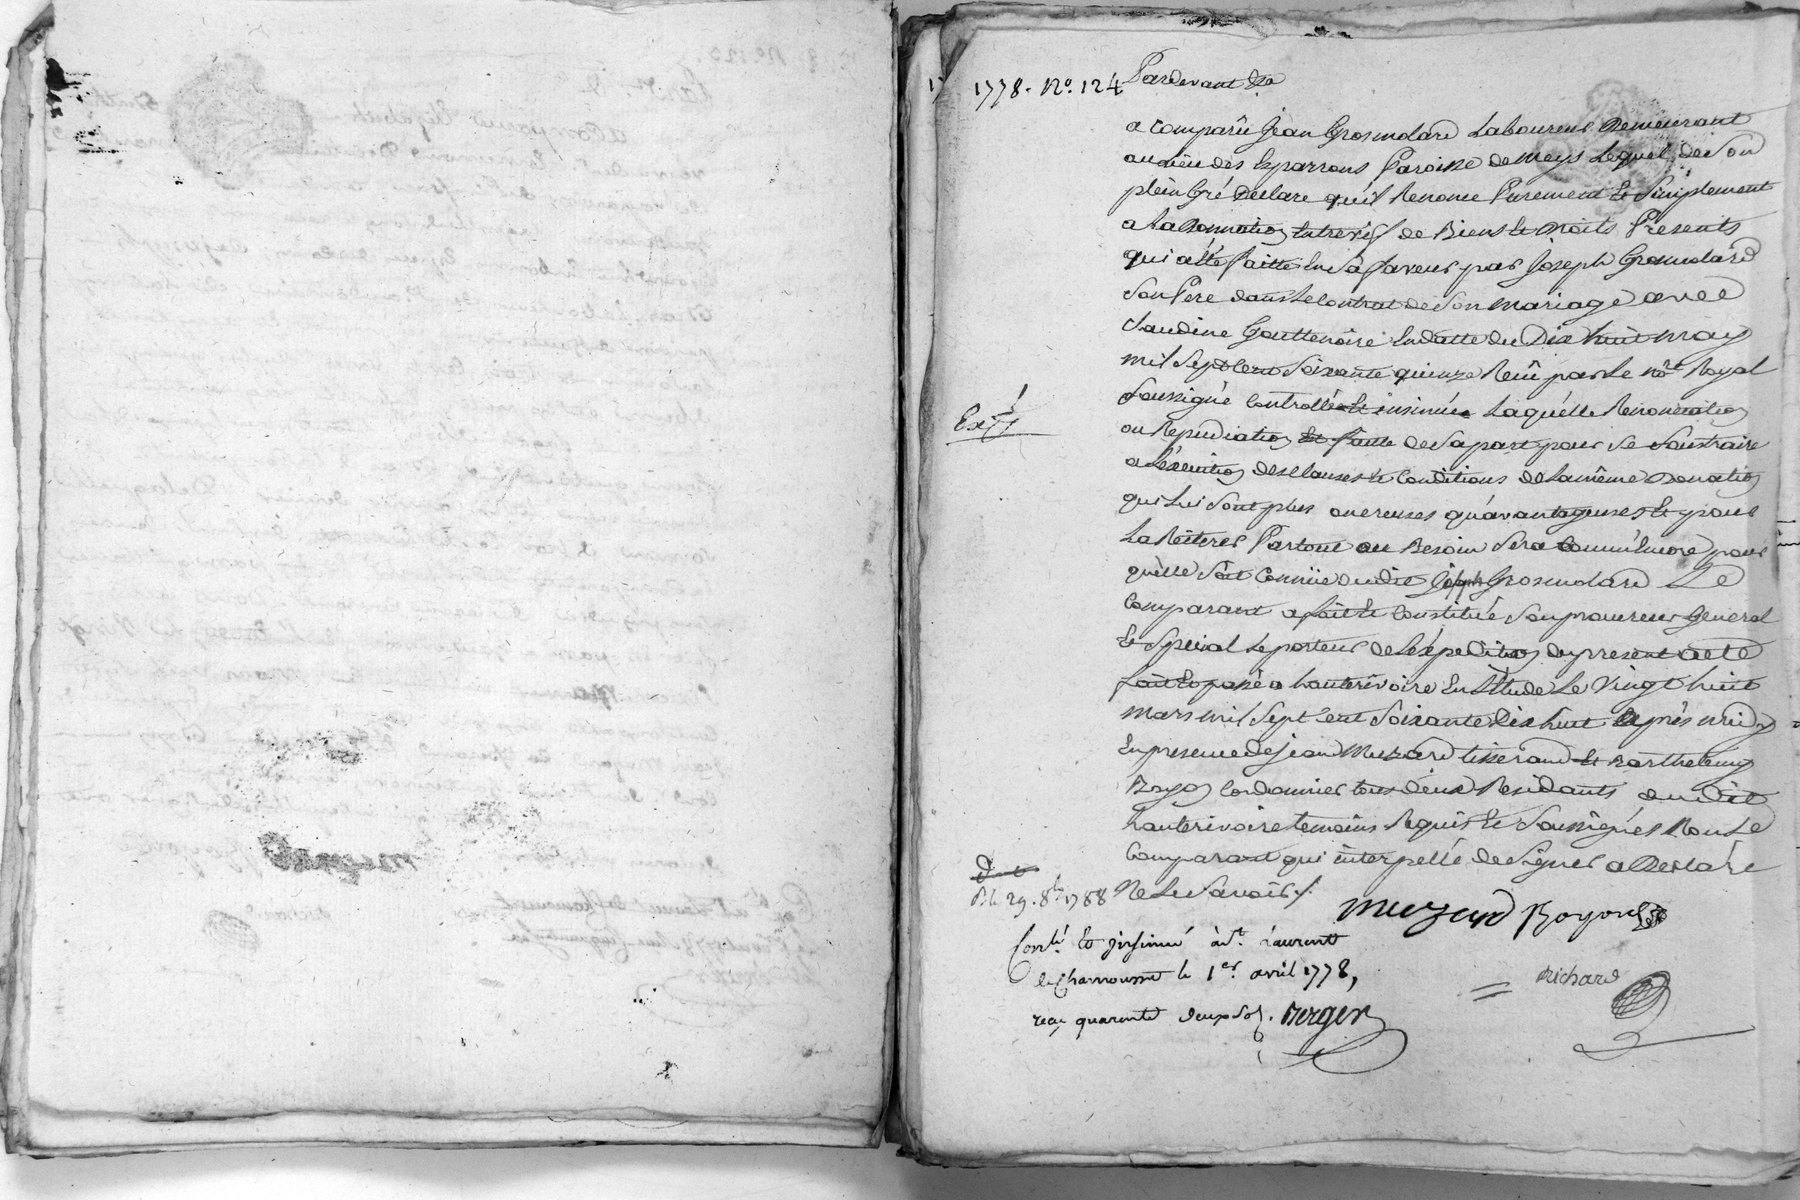 1778. No. 124 Pardevant &a
a comparû Jean Grosmolard Laboureur Demeurant
au lieu des Esparrons Paroisse de meys Lequel de Son
plein Gré Declare qu'il Renonce Purement Et Simplement
a La Donnation Entrevifs de Biens Et Droits Presents
qui a Eté faitte En Sa faveur par Joseph Grosmolard
Son Pere dans Le Contrat de Son mariage avec
Claudine Gouttenoire En datte du Dix huit may
mil Sept Cent Soixante quinze Reçû par Le nore Royal
Soussigné Controllé Et insinué Laquelle Renonciation
ou Repudiation Est faitte de Sa part pour Se Soustraire
a L'éxécution des Clauses Et Conditions de La même Donation
qui Lui Sont plus onereuses qu'avantageuses Et pour
La Réiterer Partout au Besoin Sera Comme Encore pour
qu'elle Soit Connüe dudit Joseph Grosmolard Le
Comparant a fait Et Constitué Son procureur General
Et Special Le porteur de L'éxpedition du present acte
fait Et passé a hauterivoire En L'Etude Le Vingt huit
mars mil Sept Cent Soixante Dix huit après midy
En presence de Jean Muzard tisserand Et Barthelemy
Boyon Cordonnier tous deux Residants audit
hauterivoire temoins Requis Et Soussignés Non Le
Comparant qui interpellé de Signer a Declaré
Ne Le Savoir /.
Exp
29. 8bre 1788
muzard Boyon
Conlé Et insinué à St. Laurent
de Chamousset le 1er. avril 1778,
reçu quarente deux Sols. Berger
Richard